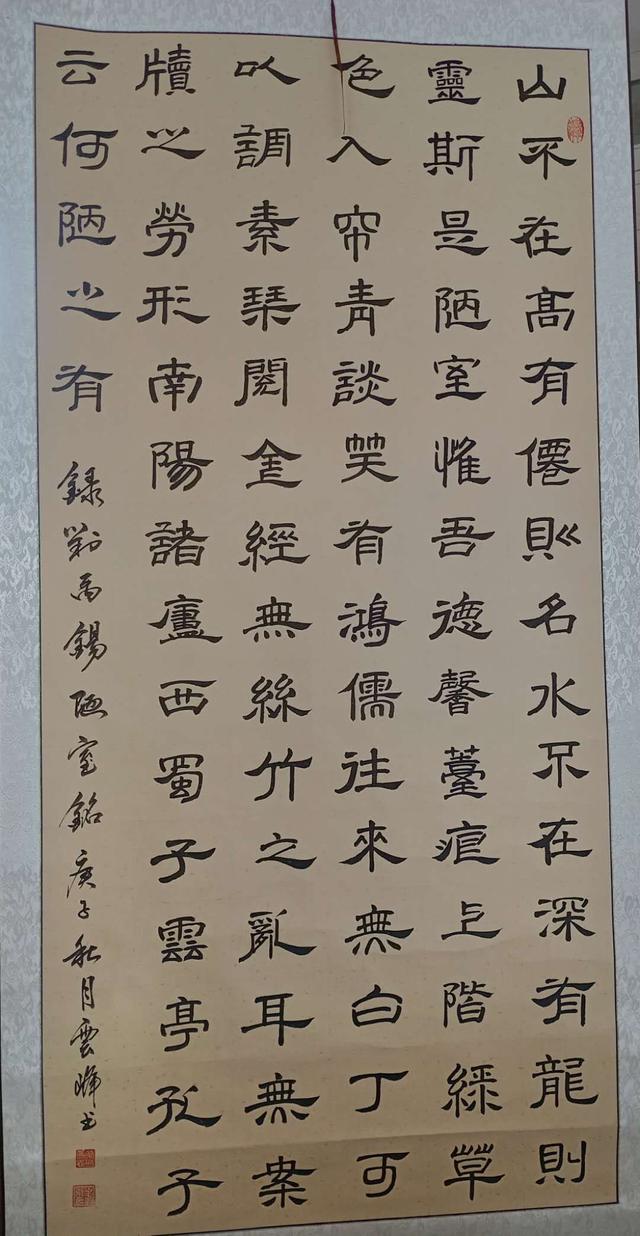 山不在高有僊則名水不在深有龍則
靈斯是陋室惟吾德馨薹痕上階綠草
色入帘青談笑有鴻儒往來無白丁可
以調素琴閱金經無絲竹之亂耳無案
牘之勞形南陽諸廬西蜀子雲亭孔子
云何陋之有
錄劉禹錫陋室銘庚子秋月雲暉书